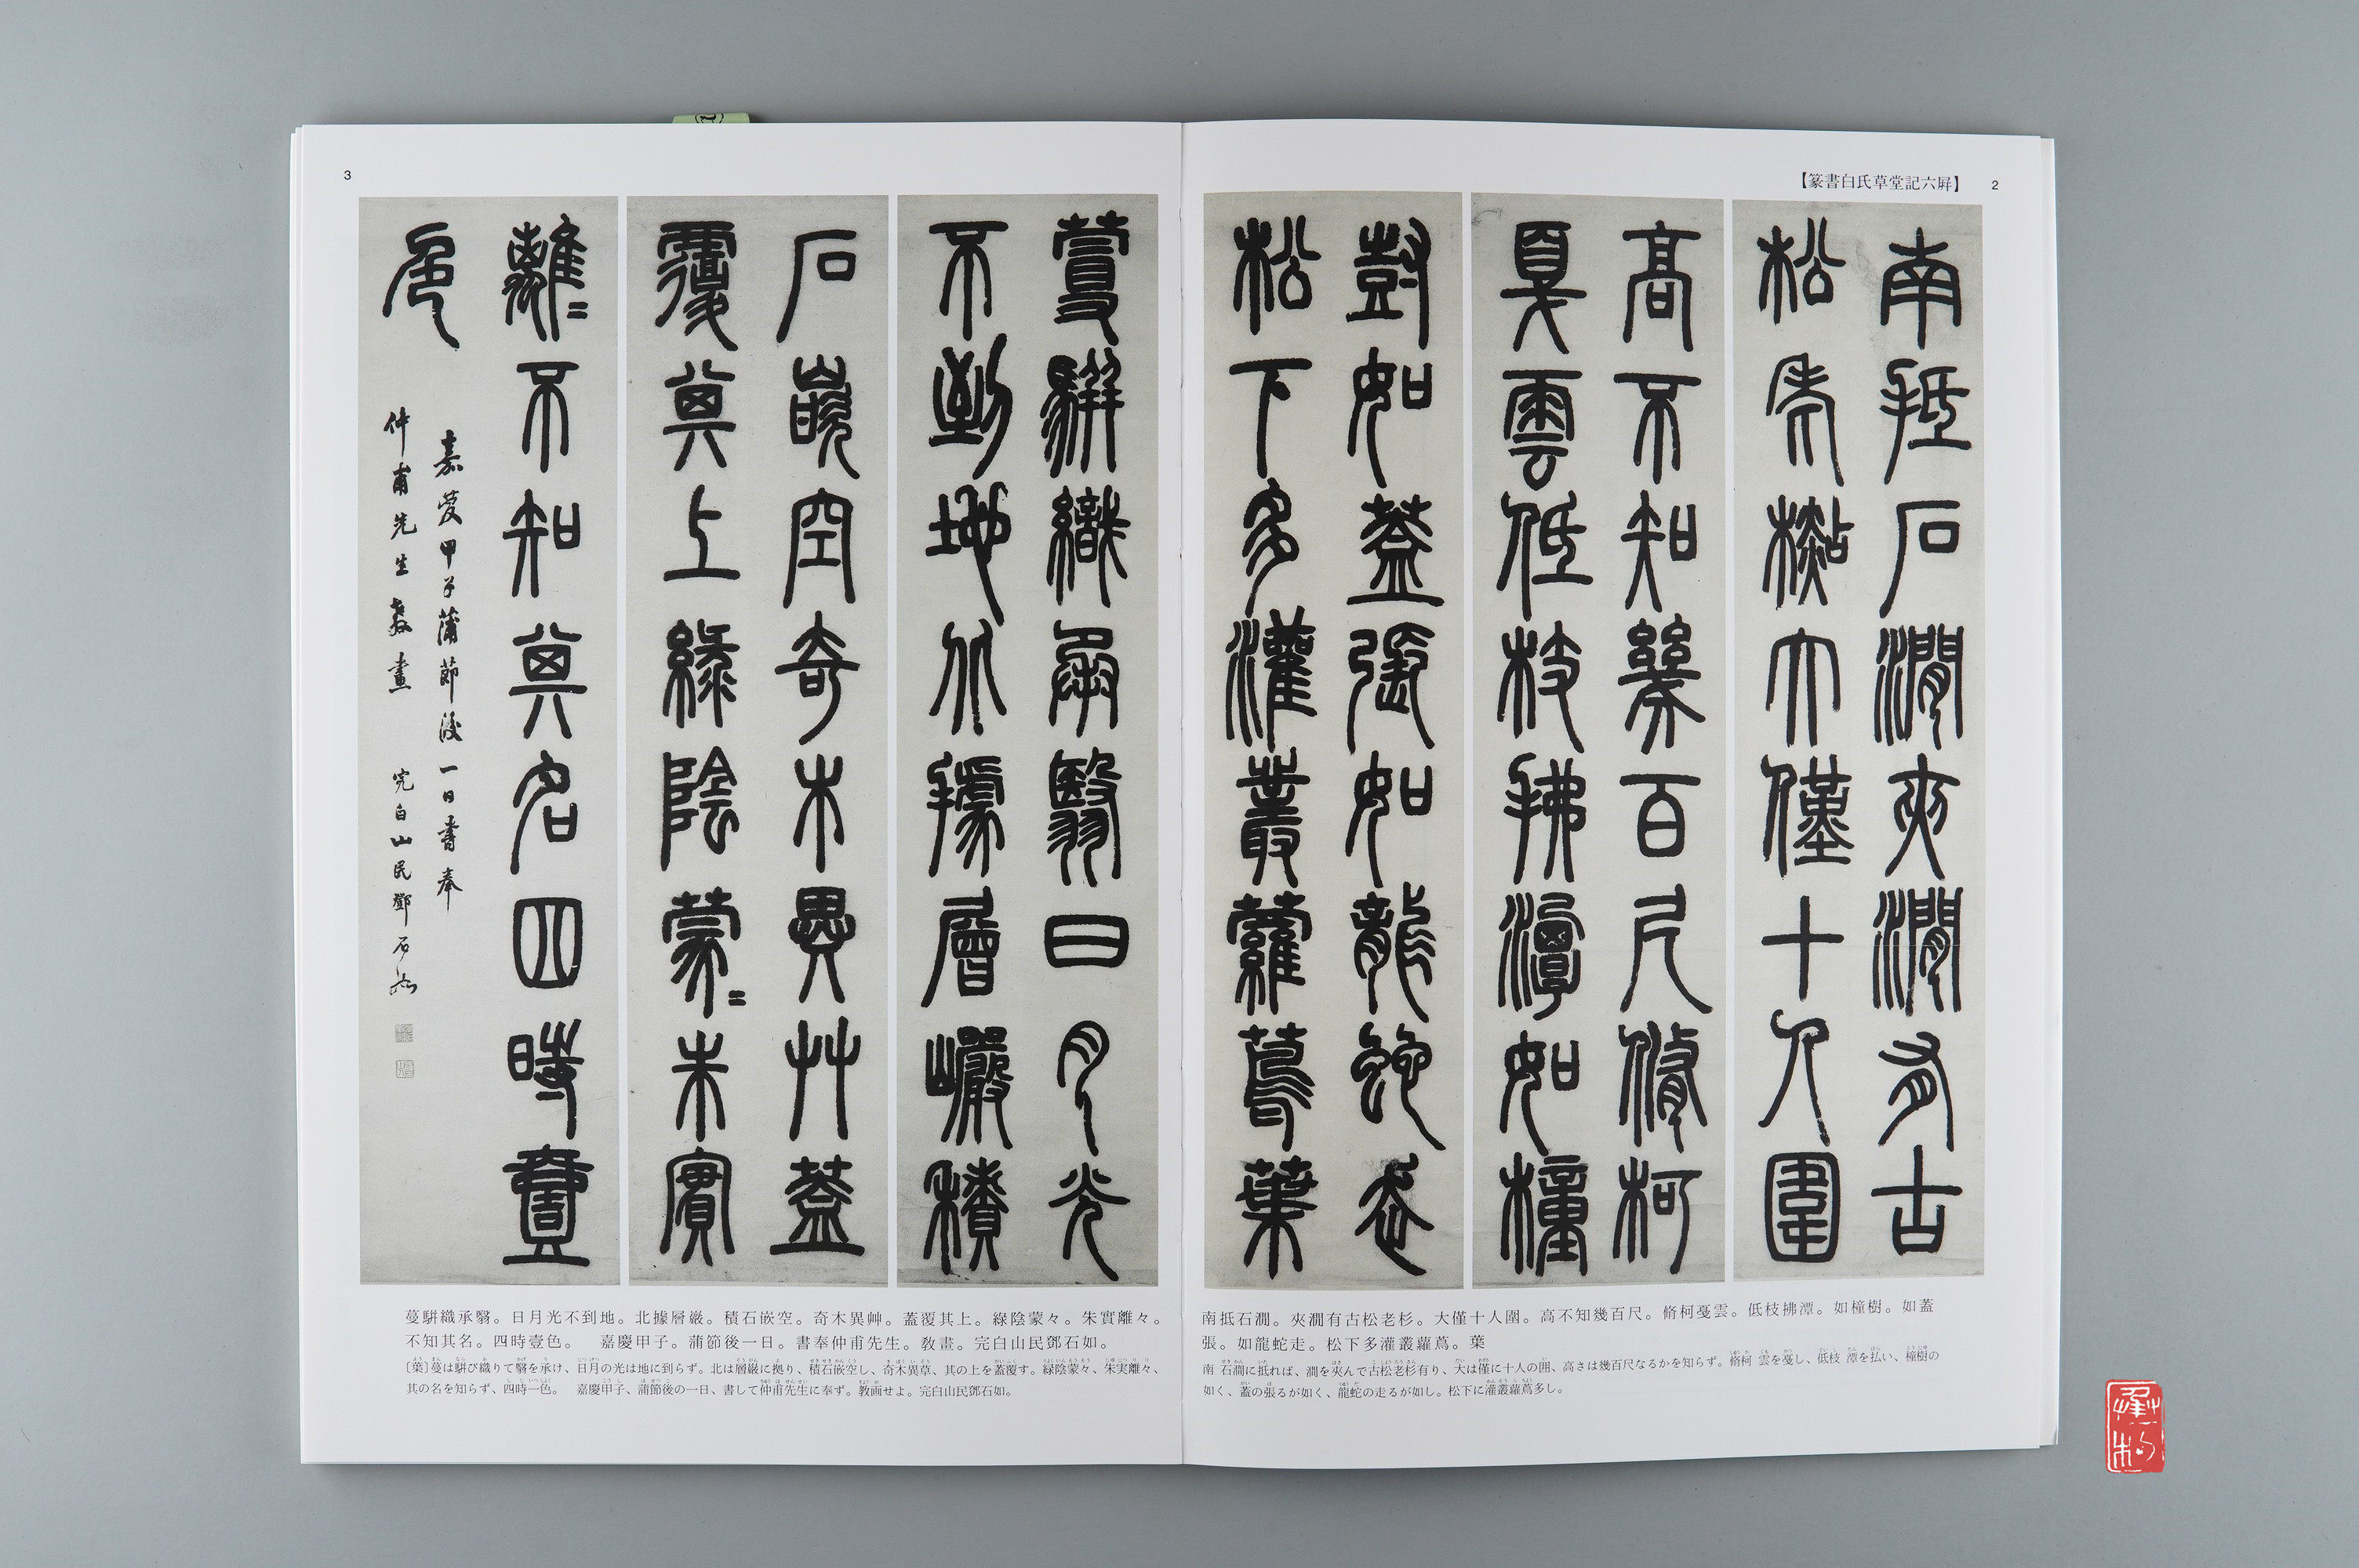 【篆書白氏草堂記六屏】 2
南抵石澗夾澗有古
松老杉大僅十人圍
高不知幾百尺脩柯
戛雲低枝拂潭如橦
尌如蓋張如龍蛇走
松下多灌叢蘿蔦葉
南抵石澗。夾澗有古松老杉。大僅十人圍。高不知幾百尺。脩柯戛雲。低枝拂潭。如橦樹。如蓋
張。如龍蛇走。松下多灌叢蘿蔦。葉
南 石澗に抵れば、澗を夾んで古松老杉有り、大は僅に十人の囲、高さは幾百尺なるかを知らず。脩柯 雲を戛し、低枝 潭を払い、橦樹の
如く、蓋の張るが如く、龍蛇の走るが如し。松下に灌叢蘿蔦多し。
3
蔓駢織承翳日月光
不到地北據層巖積
石嵌空奇木異艸蓋
覆其上綠陰蒙々朱實
離々不知其名四時壹
色
嘉慶甲子蒲節後一日書奉
仲甫先生教畫 完白山民鄧石如
蔓駢織承翳。日月光不到地。北據層巖。積石嵌空。奇木異艸。蓋覆其上。綠陰蒙々。朱實離々。
不知其名。四時壹色。 嘉慶甲子。蒲節後一日。書奉仲甫先生。教畫。完白山民鄧石如。
〔葉〕蔓は駢び織りて翳を承け、日月の光は地に到らず。北は層巌に拠り、積石嵌空し、奇木異草、其の上を蓋覆す。緑陰蒙々、朱実離々、
其の名を知らず、四時一色。 嘉慶甲子、蒲節後の一日、書して仲甫先生に奉ず。教画せよ。完白山民鄧石如。